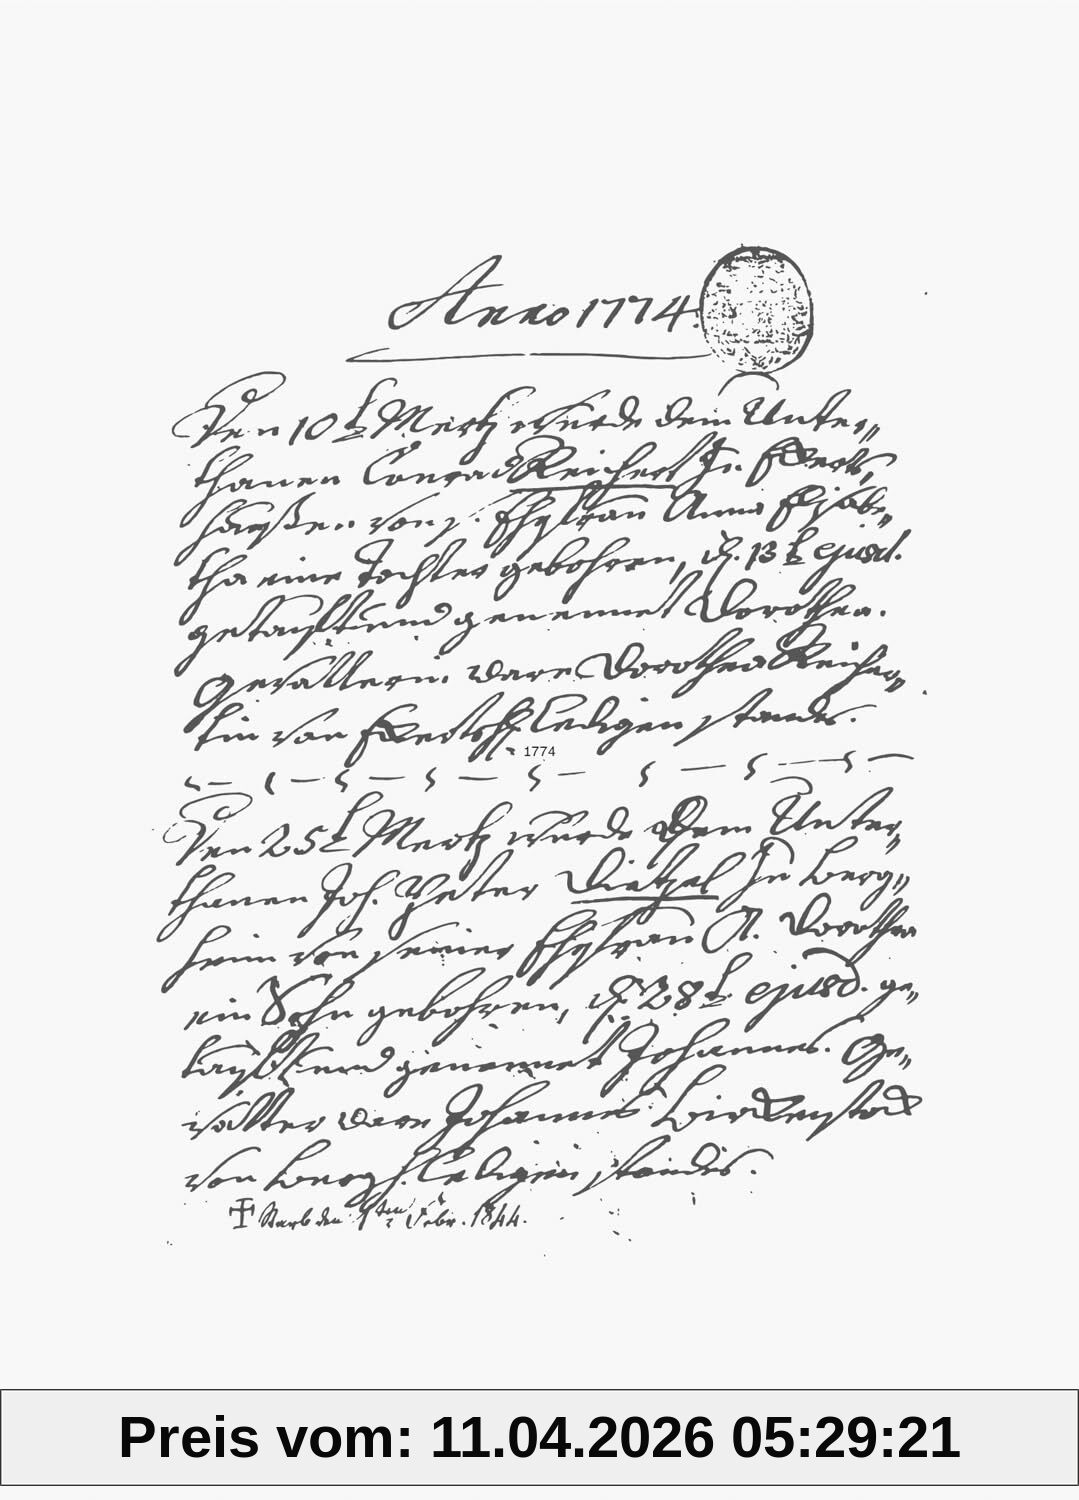 Anno 1774.
Den 10t Mertz wurde dem Unter„
thanen Conrad Reichert In Ederts„
haußen von s. Ehefrau Anna Elisabe„
tha eine Tochter gebohren, d. 13t ejusd.
getauft und genennet Dorothea.
Gevatterin. ware Dorothea Reicher„
tin von Edertsh. ledigen standes.
1774
Den 25t Mertz wurde Dem Unter„
thanen Joh. Peter Dietzel In Berg„
heim von seiner Ehefrau A. Dorothea
ein Sohn gebohren, d. 28t ejusd. ge„
tauft und genennet Johannes. Ge„
vatter ware Johannes
von Bergh. ledigen standes.
Starb den ten Febr. 1844.
Preis vom: 11.04.2026 05:29:21